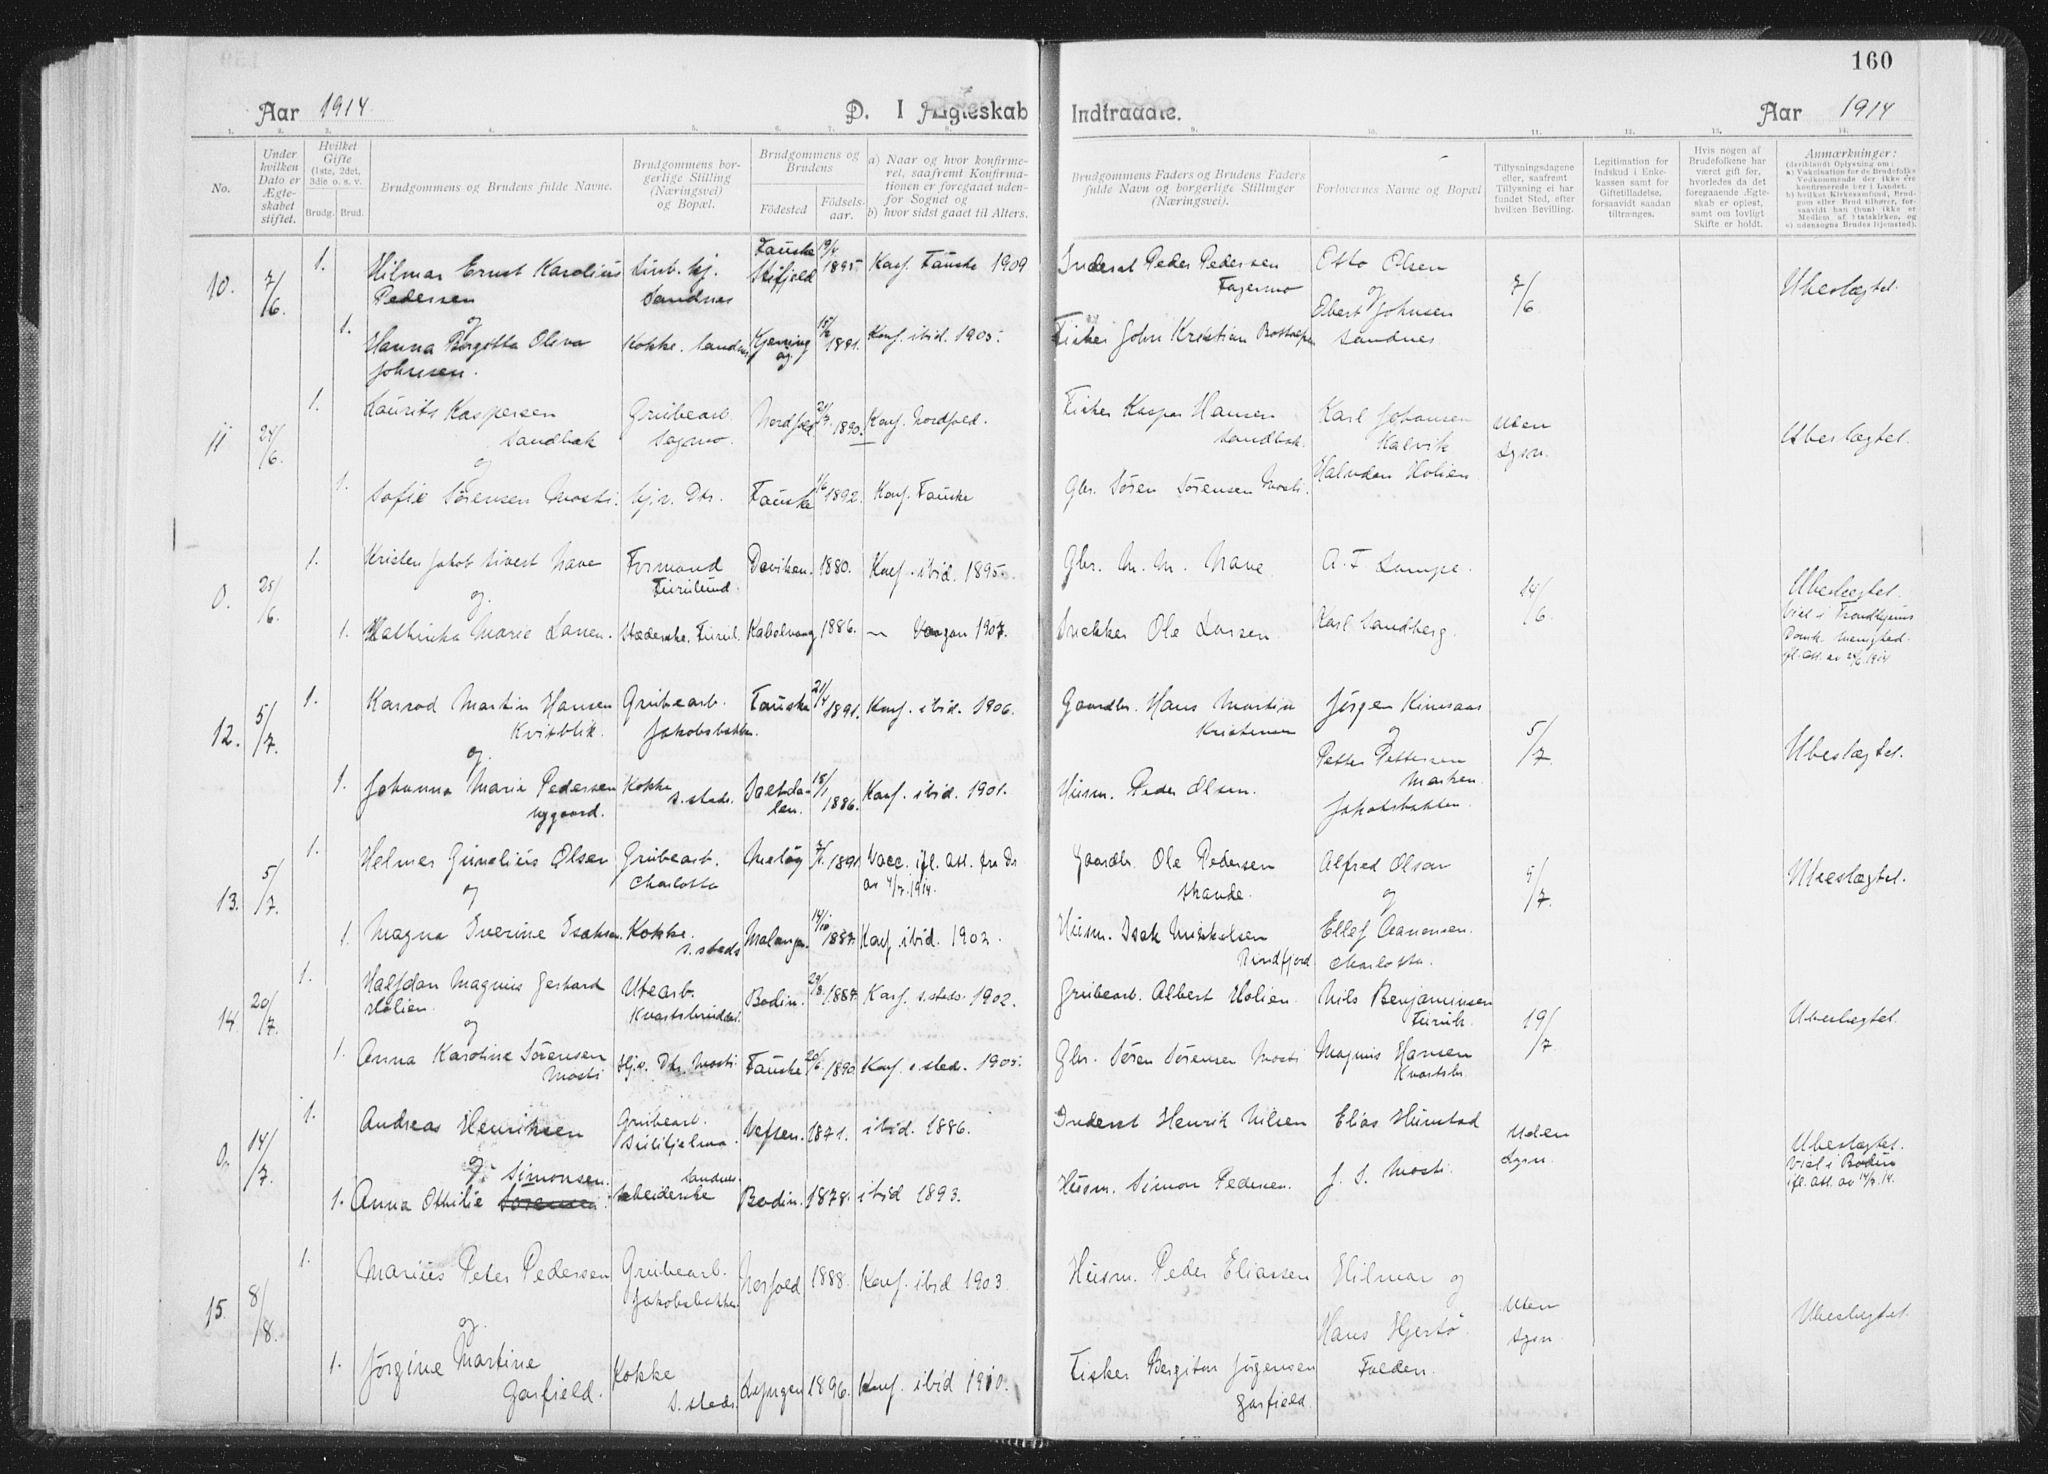 160
Aar 1914 D. I Ægteskab Indtraadte. Aar 1914
1. 2. 3. 4. 5. 6. 7. 8. 9. 10. 11. 12. 13. 14.
No.
Under hvilken Dato er Ægteskabet stiftet.
Hvilket Gifte (1ste, 2det, 3die o. s. v.
Brudg. Brud.
Brudgommens og Brudens fulde Navne.
Brudgommens borgerlige Stilling (Næringsvei) og Bopæl.
Brudgommens og Brudens
Fødested Fødselsaar.
a) Naar og hvor konfirmeret, saafremt Konfirmationen er foregaaet udenfor Sognet og
b) hvor sidst gaaet til Alters.
Brudgommens Faders og Brudens Faders fulde Navn og borgerlige Stillinger (Næringsvei).
Forlovernes Navne og Bopæl
Tillysningsdagene eller, saafremt Tillysning ei har fundet Sted, efter hvilken Bevilling.
Legitimation for Indskud i Enkekassen samt for Giftetilladelse, forsaavidt saadan tiltrænges.
Hvis nogen af Brudefolkene har været gift før, hvorledes da det foregaaende Ægteskab er opløst, samt om lovligt Skifte er holdt.
Anmærkninger:
(deriblandt Oplysning om:
a) Vaksination for de Brudefolks Vedkommende der ikke ere konfirmerede her i Landet.
b) hvilket Kirkesamfund, Brudgom eller Brud tilhører, forsaavidt han (hun) ikke er Medlem af Statskirken, og
c) udensogns Brudes Hjemsted).
10. 7/6 1. Hilmar Ernst Karolius Pedersen Sandnes Fauske 19/4 1895 Konf. Fauske 1909 Inderst Peder Pedersen Fagermo Otto Olsen og 7/6 Ubeslægtet.
og
1. Hanna Bergitta Oleva Johnsen. Kokke. Sandnes Kjerringøy 1891. Konf. ibid. 1905. Fisker John Kristian Edvart Johnsen Sandnes
11 24/6. 1. Laurits Kaspersen Sandbak Grubearb. Sagmo. Nordfold 1890. Konf. Nordfold. Fisker Kasper Hansen Sandbak. Karl Johansen Kalvik Uten Lysn. Ubeslægtet.
og
1. Sofie Sørensen Mosti. Hjv. Dtr. Fauske 1892. Konf. Fauske Gbr. Søren Sørensen Mosti. Halvdan Holien
0. 25/6 1. Kristen Jakob Sivert Nave Formand Furulund. Daviken. 1880. Konf. ibid. 1895. Gbr. M. M. Nave. A. F. Lampe. 14/6 Ubeslægtet.
og
1. Marie Larsen. Kabelvaag 1886. — Vaagan 1907. Snekker Ole Larsen Karl Sandberg. Viet i Trondhjems Domk. menighed ifl. att. av 1914
12. 5/7. 1. Konrad Martin Hansen Kvitblik. Grubearb. Jakobsbakken. Fauske 21/4 1891. Konf. ibid. 1906. Gaardbr. Hans Martin Kristensen Jørgen 5/7. Ubeslægtet.
og
1. Johanna Marie Pedersen Nygaard. Kokke s. steds. Saltdalen. 18/1 1886. Konf. ibid. 1901. Husm. Peder Olsen. Petter Pettersen Jakobsbakken.
13. 5/7. 1. Helmer Gunelius Olsen Grubearb. Charlotta Meløy 1891 Vacc. ifl. att. fra Dr av 4/7. 1914. Gaardbr. Ole Pedersen Alfred Olsen og 5/7. Ubeslægtet.
og
1. Magna Iverine Isaksen. Kokke. s. steds Malangen. 14/10 1887 Konf. ibid. 1902. Husm. Isak Mikkelsen Ellef Aanonsen. Charlotta.
14. 20/7. 1. Halfdan Magnus Gerhard Holien. Utearb. Bodin. 29/8 1887. Konf. s. steds. 1902. Grubearb. Albert Holien. Nils Benjaminsen Furul. 19/7. Ubeslægtet.
og
1. Anna Karoline Sørensen Mosti Hjv. Dtr. Mosti Fauske 20/6 1890 Konf. s. steds. 1905. Gbr. Søren Sørensen Mosti Magnus Hansen
0. 14/7. 1. Andreas Henriksen Grubearb. Sulitjelma. Vefsen. 1871. ibid. 1886. Inderst Henrik Nilsen Elias Uden Lysn. Ubeslægtet.
og
1. Anna Othilie Simonsen. Sandnes. Bodin. 1878. ibid 1893. Husm. Simon Pedersen. J. S. Mosti. Viet i Bodin ifl. att. av 14/7. 14.
15. 8/8. 1. Marius Peter Pedersen Grubearb. Jakobsbakken. Norfold 1888. Konf. ibid 1903. Husm. Peder Eliassen Hilmar og Uten Lysn. Ubeslægtet.
og
1. Jørgine Martine Garfield. Kokke s. steds. Lyngen 1896. Konf. ibid 1910. Fisker Bergiton Jørgensen Garfield. Hans Hjertø. Folden.